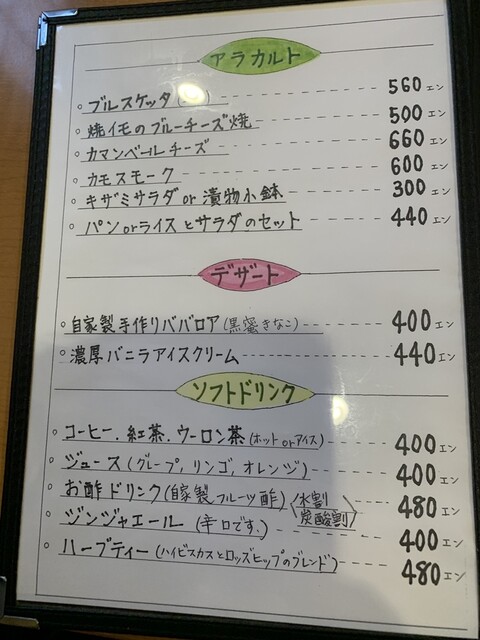 アラカルト
◦ブルスケッタ 560エン
◦焼イモのブルーチーズ焼 500エン
◦カマンベールチーズ 660エン
◦カモスモーク 600エン
◦キザミサラダor漬物小鉢 300エン
◦パンorライスとサラダのセット 440エン
デザート
◦自家製手作りババロア(黒蜜きなこ) 400エン
◦濃厚バニラアイスクリーム 440エン
ソフトドリンク
◦コーヒー.紅茶.ウーロン茶(ホットorアイス) 400エン
◦ジュース(グレープ,リンゴ,オレンジ) 400エン
◦お酢ドリンク(自家製フルーツ酢)〈水割 炭酸割〉 480エン
◦ジンジャエール(辛口です.) 400エン
◦ハーブティー(ハイビスカスとロッズヒップのブレンド) 480エン